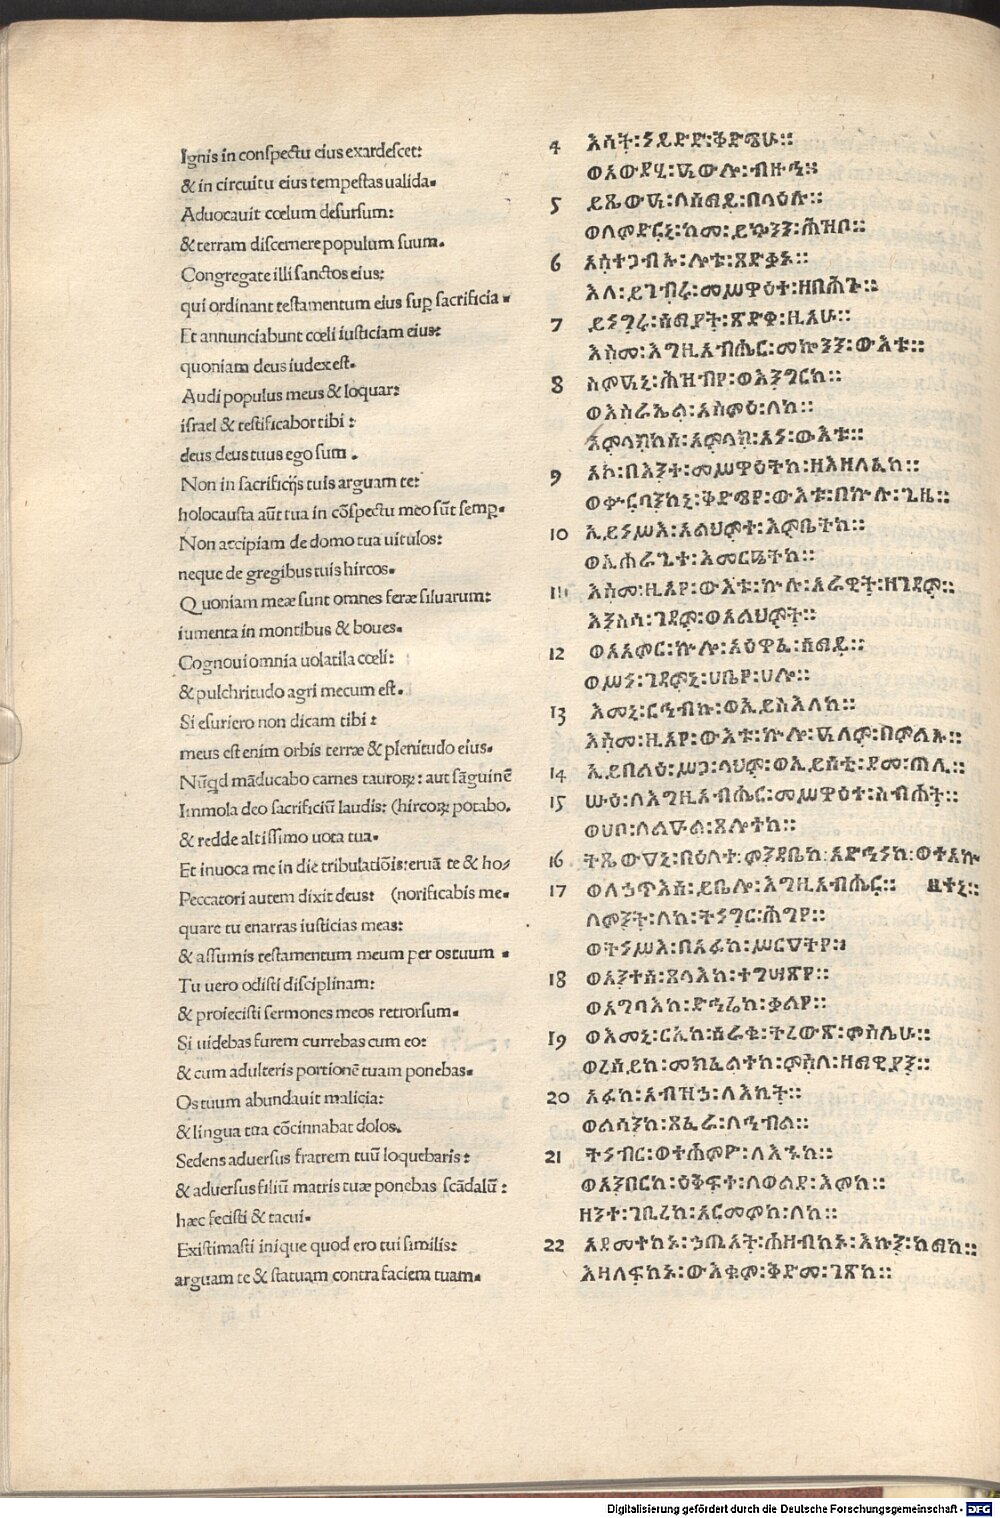 Ignis in conspectu eius exardescet:
& in circuitu eius tempestas ualida.
Aduocauit cœlum desursum:
& terram discernere populum suum.
Congregate illi sanctos eius:
qui ordinant testamentum eius sup sacrificia.
Et annunciabunt cœli iusticiam eius:
quoniam deus iudex est.
Audi populus meus & loquar:
israel & testificabor tibi:
deus deus tuus ego sum.
Non in sacrificijs tuis arguam te:
holocausta aūt tua in cōspectu meo sūt semp.
Non accipiam de domo tua uitulos:
neque de gregibus tuis hircos.
Quoniam meæ sunt omnes feræ siluarum:
iumenta in montibus & boues.
Cognoui omnia uolatila cœli:
& pulchritudo agri mecum est.
Si esuriero non dicam tibi:
meus est enim orbis terræ & plenitudo eius.
Nūqd māducabo carnes tauroꝝ: aut sāguinē
Immola deo sacrificiū laudis: (hircoꝝ potabo.
& redde altissimo uota tua.
Et inuoca me in die tribulatōis: eruā te & ho/
Peccatori autem dixit deus: (norificabis me.
quare tu enarras iusticias meas:
& assumis testamentum meum per os tuum.
Tu uero odisti disciplinam:
& proiecisti sermones meos retrorsum.
Si uidebas furem currebas cum eo:
& cum adulteris portionē tuam ponebas.
Os tuum abundauit malicia:
& lingua tua cōcinnabat dolos.
Sedens aduersus fratrem tuū loquebaris:
& aduersus filiū matris tuæ ponebas scādalū:
hæc fecisti & tacui.
Existimasti inique quod ero tui similis:
arguam te & statuam contra faciem tuam.
4 እሳት፡ ይነድድ፡ ቅድሜሁ።
ወአውያፂ፡ ዓውሎ፡ ብዙኅ።
5 ይጼውዓ፡ ለሰማይ፡ በላዕሉ።
ወለምድርኒ፡ ከመ፡ ይኰንን፡ ሕዝቦ።
6 አስተጋብኡ፡ ሎቱ፡ ጻድቃኑ።
እለ፡ ይገብሩ፡ መሥዋዕተ፡ ዘበሕጉ።
7 ይነግሩ፡ ሰማያት፡ ጽድቀ፡ ዚአሁ።
እስመ፡ እግዚአብሔር፡ መኰንን፡ ውእቱ።
8 ስምዓኒ፡ ሕዝብየ፡ ወእንግርከ።
ወእስራኤል፡ አስምዕ፡ ለከ።
አምላክከሰ፡ አምላክ፡ አነ፡ ውእቱ።
9 አኮ፡ በእንተ፡ መሥዋዕትከ፡ ዘእዛለፈከ።
ወቍርባንከኒ፡ ቅድሜየ፡ ውእቱ፡ በኵሉ፡ ጊዜ።
10 ኢይነሥእ፡ አልህምተ፡ እምቤትከ።
ወኢሐራጊተ፡ እመርዔትከ።
11 እስመ፡ ዚአየ፡ ውእቱ፡ ኵሉ፡ አራዊት፡ ዘገዳም።
እንስሳ፡ ገዳም፡ ወአልህምት።
12 ወአአምር፡ ኵሎ፡ አዕዋፈ፡ ሰማይ።
ወሥነ፡ ገዳምኒ፡ ኀቤየ፡ ሀሎ።
13 እመኒ፡ ርኅብኩ፡ ወኢይስእለከ።
እስመ፡ ዚአየ፡ ውእቱ፡ ኵሉ፡ ዓለም፡ በምልኡ።
14 ኢይበልዕ፡ ሥጋ፡ ላህም፡ ወኢይሰቲ፡ ደመ፡ ጠሊ።
15 ሡዕ፡ ለእግዚአብሔር፡ መሥዋዕተ፡ ስብሐት።
ወሀቦ፡ ለልዑል፡ ጸሎተከ።
16 ትጼውዓኒ፡ በዕለተ፡ ምንዳቤከ፡ አድኅነከ፡ ወተአኵ
17 ወለኃጥእሰ፡ ይቤሎ፡ እግዚአብሔር። ዘተኒ።
ለምንት፡ ለከ፡ ትነግር፡ ሕግየ።
ወትነሥእ፡ በአፉከ፡ ሥርዓትየ።
18 ወአንተሰ፡ ጸላእከ፡ ተግሣጽየ።
ወአግባእከ፡ ድኅሬከ፡ ቃልየ።
19 ወእመኒ፡ ርኢከ፡ ሰራቂ፡ ትረውጽ፡ ምስሌሁ።
ወረሰይከ፡ መክፈልተከ፡ ምስለ፡ ዘማዊያን።
20 አፉከ፡ አብዝኃ፡ ለእኪት።
ወልሳንከ፡ ጸፈራ፡ ለኅብል።
21 ትነብር፡ ወተሐምዮ፡ ለእኁከ።
ወአንበርከ፡ ዕቅፍተ፡ ለወልደ፡ እምከ።
ዘንተ፡ ገቢረከ፡ አርመምኩ፡ ለከ።
22 አደመተከኑ፡ ኃጢአት፡ ሐዘብከኑ፡ እኩን፡ ከማከ።
እዛለፍከኑ፡ ውእቁም፡ ቅድመ፡ ገጽከ።